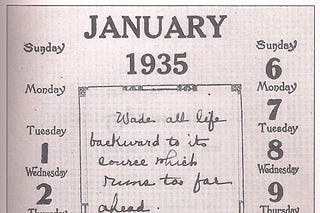 JANUARY
1935
Sunday
Monday
Tuesday
1
Wednesday
2
Thursday
Wade all life
backward to its
source which
runs too far
ahead.
Sunday
6
Monday
7
Tuesday
8
Wednesday
9
Thursday